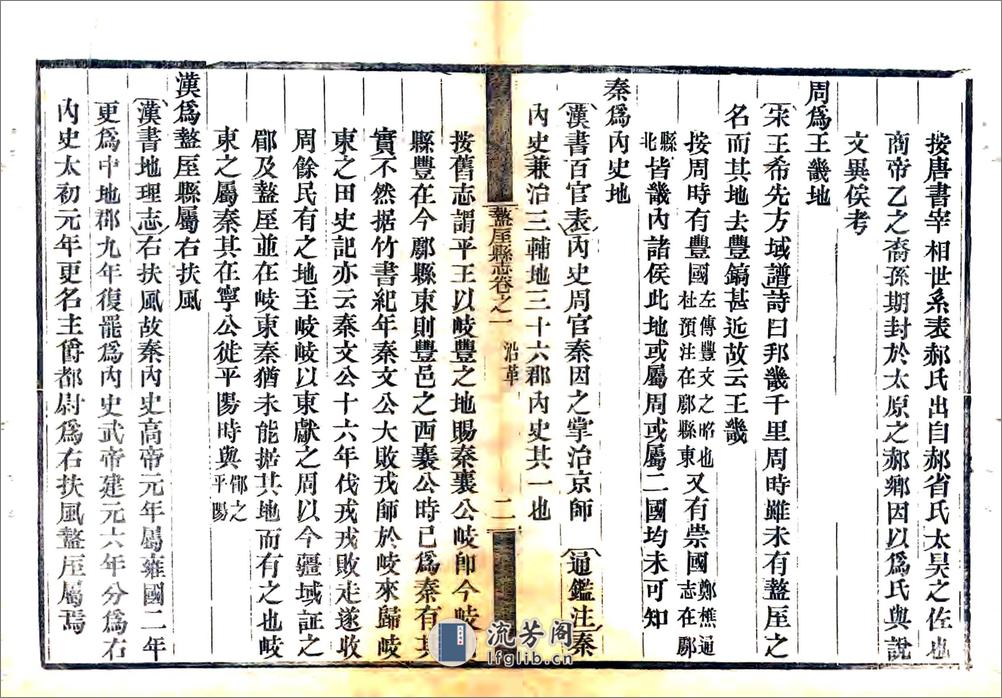 按唐書宰相世系表郝氏出自郝省氏太昊之佐也
商帝乙之裔孫期封於太原之郝鄉因以爲氏與說
文異俟考
周爲王畿地
宋王希先方域譜詩曰邦畿千里周時雖未有盩厔之
名而其地去豐鎬甚近故云王畿
按周時有豐國左傳豐文之昭也杜預注在鄠縣東又有崇國鄭樵通志在鄠
縣北皆畿內諸侯此地或屬周或屬二國均未可知
秦爲內史地
漢書百官表內史周官秦因之掌治京師 通鑑注秦
內史兼治三輔地三十六郡內史其一也
盩厔縣志卷之一 沿革 二
按舊志謂平王以岐豐之地賜秦襄公岐卽今岐
縣豐在今鄠縣東則豐邑之西襄公時已爲秦有其
實不然据竹書紀年秦文公大敗戎師於岐來歸岐
東之田史記亦云秦文公十六年伐戎戎敗走遂收
周餘民有之地至岐岐以東獻之周以今疆域証之
郿及盩厔並在岐東秦猶未能据其地而有之也岐
東之屬秦其在寧公徙平陽時與郿之平陽
漢爲盩厔縣屬右扶風
漢書地理志右扶風故秦內史高帝元年屬雍國二年
更爲中地郡九年復罷爲內史武帝建元六年分爲右
內史太初元年更名主爵都尉爲右扶風盩厔屬焉
流芳阁
lfglib.cn